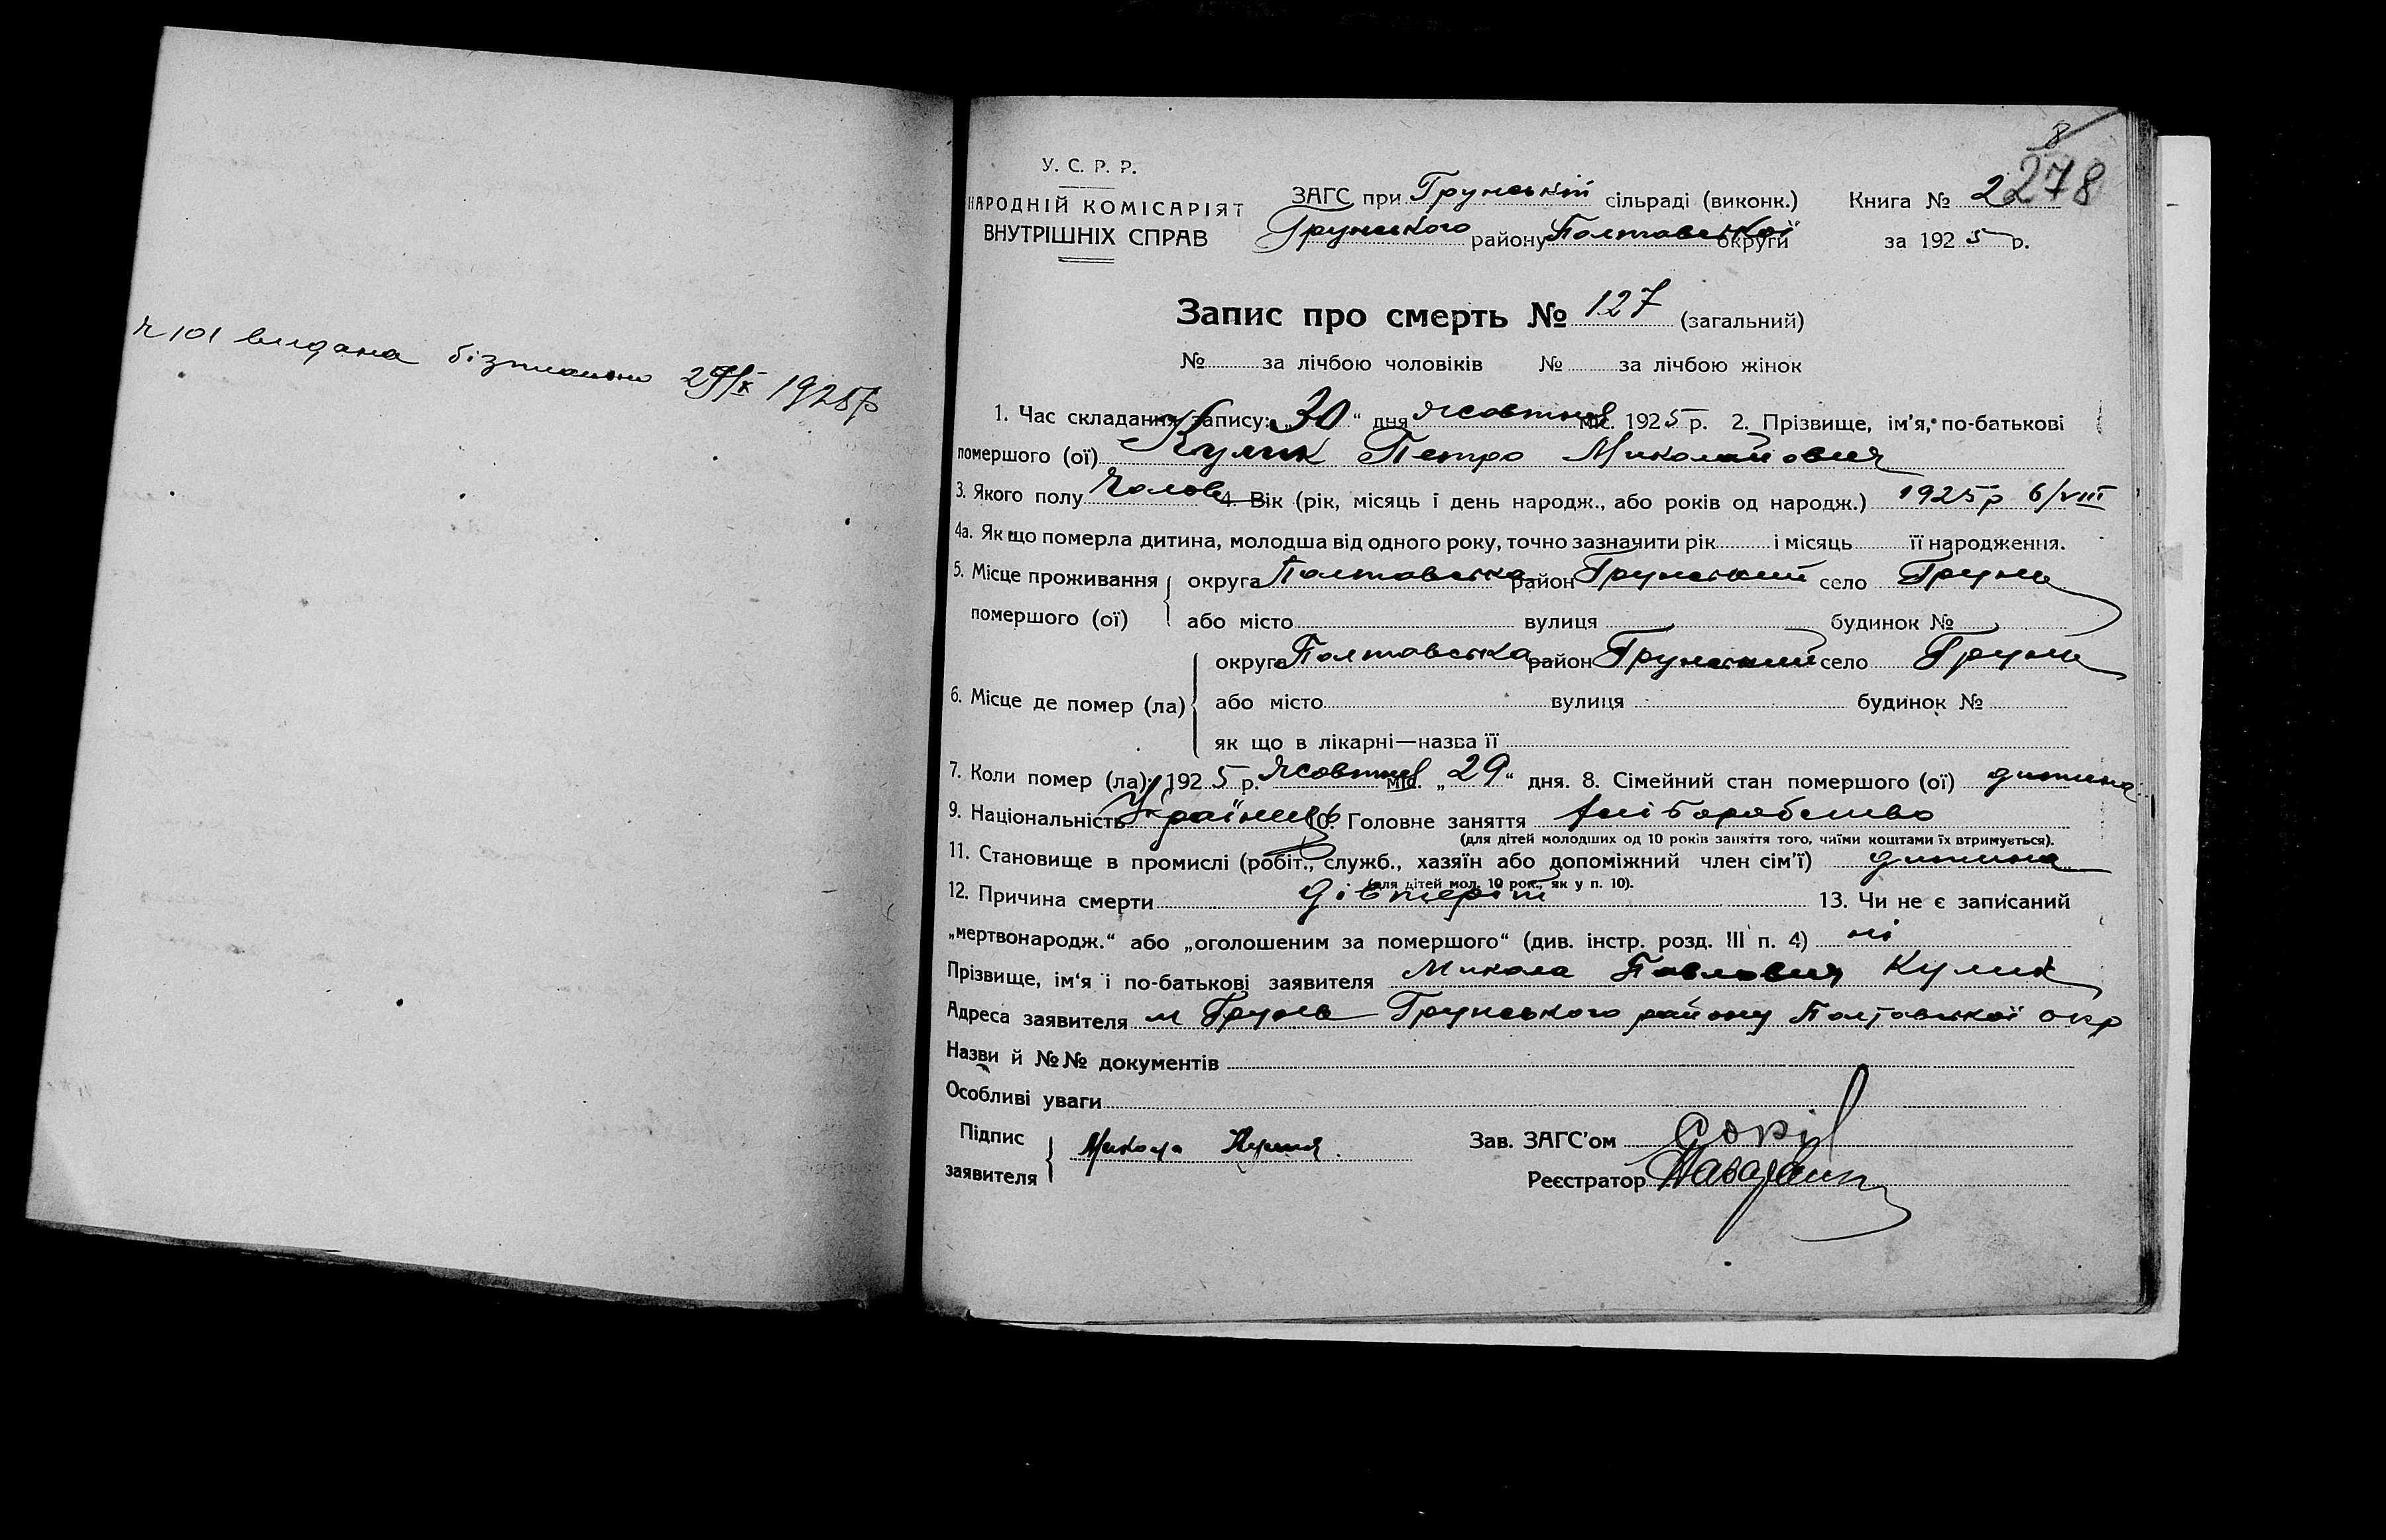 ч 101 видана безплатно 29/X 1925 р
8
278
У. С. Р. Р.
НАРОДНІЙ КОМІСАРІЯТ
ВНУТРІШНІХ СПРАВ
ЗАГС при Грунській сільраді (виконк.) Книга № 2
Грунського району Полтавської округи за 1925 р.
Запис про смерть № 127 (загальний)
№ за лічбою чоловіків № за лічбою жінок
1. Час складання запису: „30" дня жовтня міс. 1925 р. 2. Прізвище, ім'я, по-батькові
помершого (ої) Кулик Петро Миколайович
3. Якого полу Чолов 4. Вік (рік, місяць і день народж., або років од народж.) 1925 р 6/VIII
4а. Як що померла дитина, молодша від одного року, точно зазначити рік і місяць її народження.
5. Місце проживання округа Полтавська район Грунський село Грунь
помершого (ої) або місто вулиця будинок №
округа Полтавська район Грунський село Грунь
6. Місце де помер (ла) або місто вулиця будинок №
як що в лікарні—назва її
7. Коли помер (ла): 1925 р. жовтня міс. „29" дня. 8. Сімейний стан помершого (ої) дитина
9. Національність Українець 10. Головне заняття хліборобство
(для дітей молодших од 10 років заняття того, чиїми коштами їх втримується).
11. Становище в промислі (робіт., служб., хазяїн або допоміжний член сім'ї) дитина
(для дітей мол. 10 рок., як у п. 10).
12. Причина смерти дівтеріт 13. Чи не є записаний
„мертвонародж." або „оголошеним за помершого" (див. інстр. розд. III п. 4) ні
Прізвище, ім'я і по-батькові заявителя Микола Павлович Кулик
Адреса заявителя м Грунь Грунського району Полтавської окр
Назви й №№ документів
Особливі уваги
Підпис
заявителя Микола Кулик
Зав. ЗАГС'ом
Реєстратор